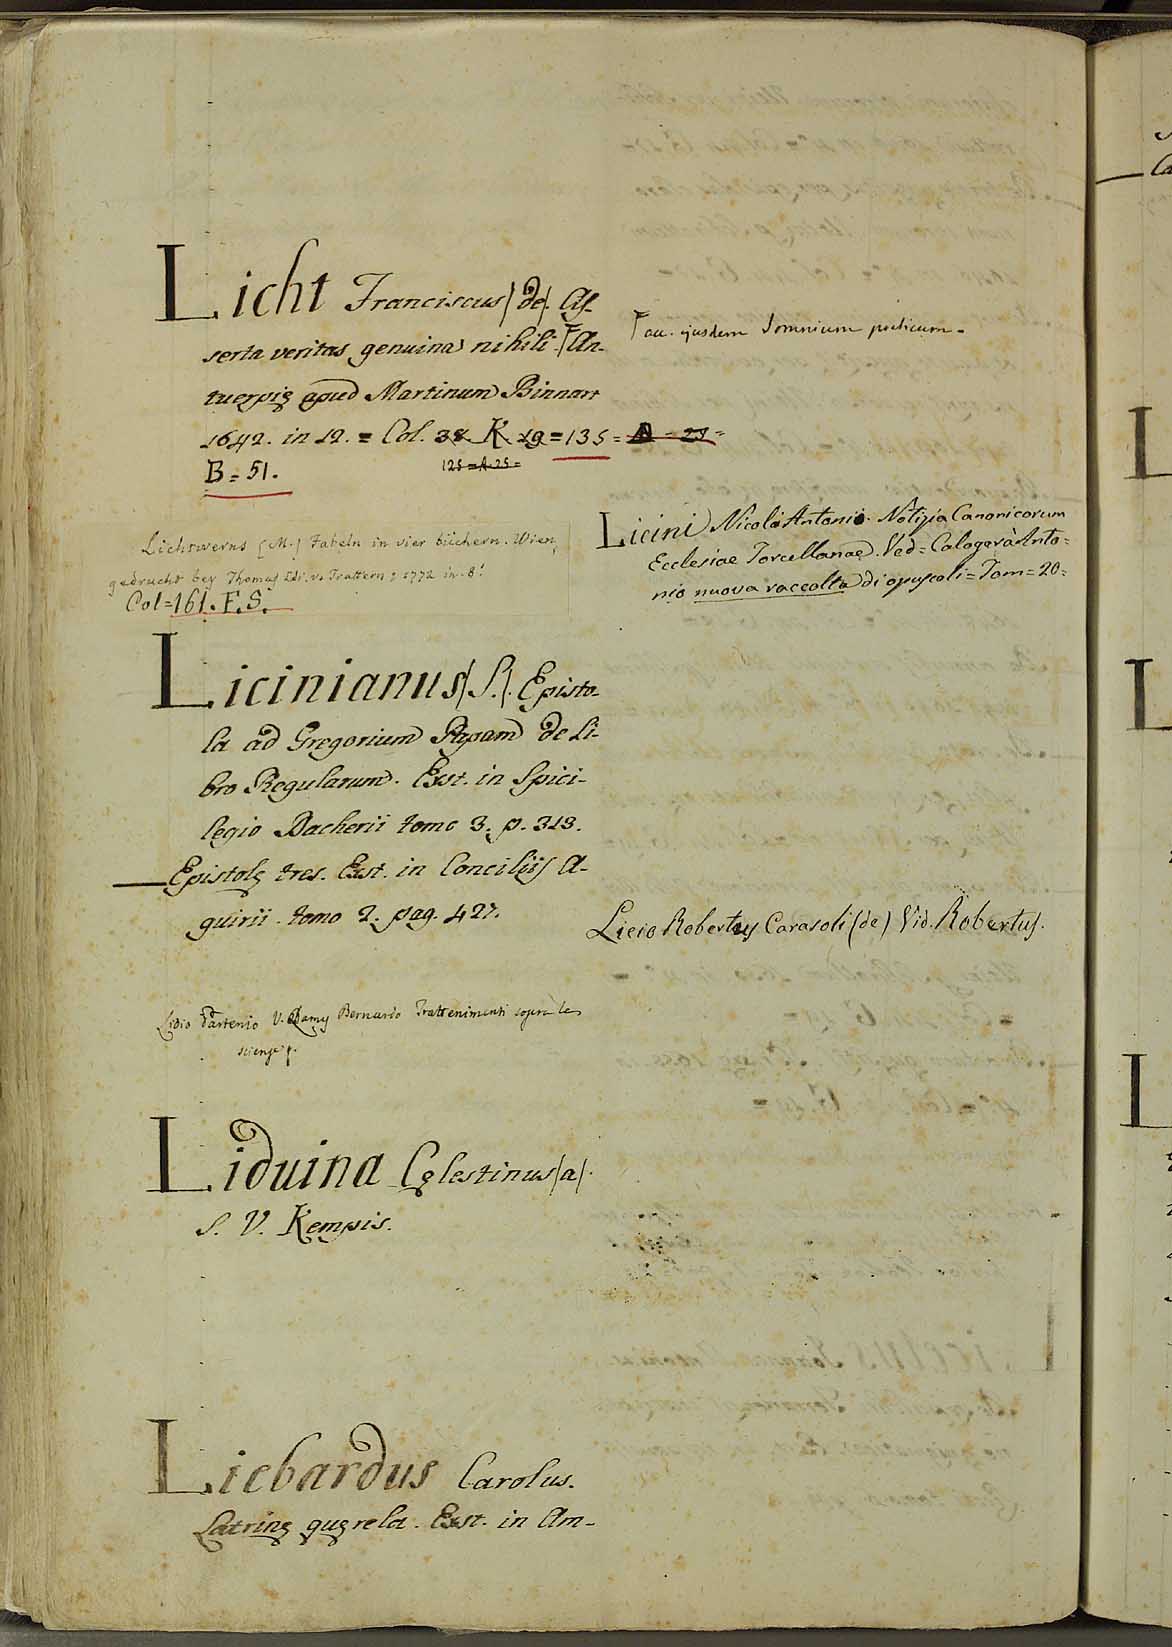 Licht Franciscus (de). As-
serta veritas genuina nihili. An-
tuerpię apud Martinum Binnart
1642. in 12. = Col. 38. K. 19 = 135 = A - 25 =
125 = A. 25 =
B = 51.
acc. ejusdem Somnium poeticum.
Lichtwerns (M.) Fabeln in vier büchern. Wien,
gedruckt bey Thomas Edl. v. Trattern, 1772 in 8.
Col = 161. F. S.
Licini Nicolò Antonio. Notizia Canonicorum
Ecclesiae Torcellanae. Ved = Calogerà Anto=
nio nuova raccolta di opuscoli = Tom = 20 =
Licinianus (S.). Episto-
la ad Gregorium Papam de Li-
bro Regularum. Exst. in Spici-
legio Dacherii tomo 3. p. 313.
— Epistolę tres. Exst. in Conciliis A-
guirii. tomo 2. pag. 427.
Licio Robertus Carasoli (de) Vid. Robertus.
Lidio Partenio V. Lamy Bernardo Trattenimenti sopra le
scienze
Liduina Cęlestinus (a).
S. V. Kempis.
Liebardus Carolus.
Latrinę quęrela. Exst. in Am-